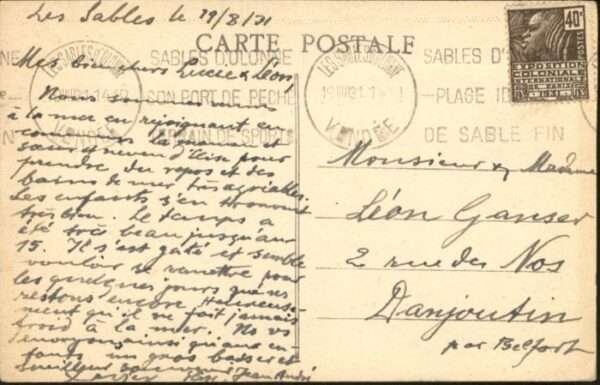 Les Sables le 19/8/31
CARTE POSTALE
Mes bien chers Lucie & Léon,
Nous sommes venus
à la mer en rejoignant en
la maman et
sœur et neveu d'Elise pour
prendre du repos et des
bains de mer, très agréables.
Les enfants s'en trouvent
très bien. Le temps a
été très beau jusqu'au
15. Il s'est gâté et semble
vouloir se remettre pour
les quelques jours que ns
restons encore. Heureuse-
ment qu'il ne fait jamais
froid à la mer. Ns vs
envoyons ainsi qu'aux en-
fants un gros baiser et
meilleur souvenir
Elise Jean André
LES SABLES D'OLONNE
VENDÉE
SABLES D'OLONNE
SON PORT DE PECHE
TERRAIN DE SPORTS
LES SABLES D'OLONNE
VENDÉE
SABLES D'
PLAGE
DE SABLE FIN
40c
POSTES
EXPOSITION
COLONIALE
INTERNATIONALE
DE PARIS
1931
Monsieur & Madame
Léon Ganser
2 rue des Nos
Danjoutin
par Belfort